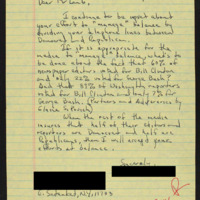 Dear Mr Lamb,
I continue to be upset about
your effort to "manage" balance by
dividing your telephone lines between
Democrat and Republican.
If it is appropriate for the
media to "manage" balance, what is to
be done about the fact that 60% of
newspaper editors voted for Bill Clinton
and only 22% voted for George Bush?
And that 83% of Washington reporters
voted for Bill Clinton and only 7% for
George Bush. (Partners and Adversaries by
When the rest of the media
insures that half of their editors and
reporters are Democrat and half are
Republicans, then I will accept your
efforts at balance.
Sincerely,
E. Setauket, N.Y. 11733